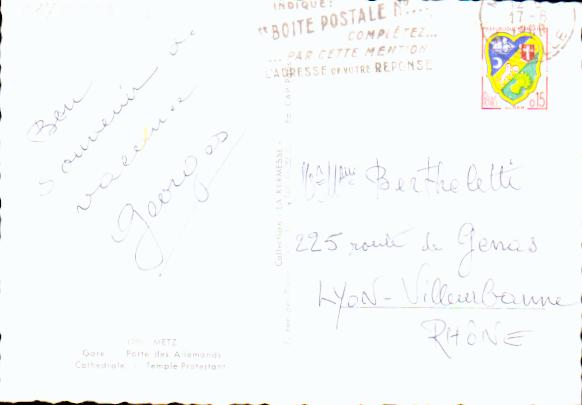 INDIQUE:
BOITE POSTALE N°....
COMPLÉTEZ...
...PAR CETTE MENTION
L'ADRESSE DE VOTRE REPONSE
17-6
0.15
Bon
souvenir de
vacance
Georges
Collection "LA KERMESSE"
Bertheletti
225 route de Genas
LYON-Villeurbanne
RHÔNE
METZ
Gare Porte des Allemands
Cathédrale Temple Protestant